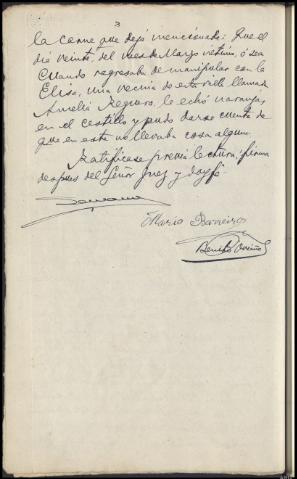 3
la carne que dejó mencionado: Que el
día veinte, del mes de Marzo último, ó sea
cuando regresaba de manipular con la
Elisa, una vecina de esta villa llamada
Amelia Reguero, le echó naranjas
en el cestillo y pudo darse cuenta de
que en este no llevaba cosa alguna
Ratificase previa lectura, firma
despues del Señor Juez y doy fé
Mario Barreiro
Benito